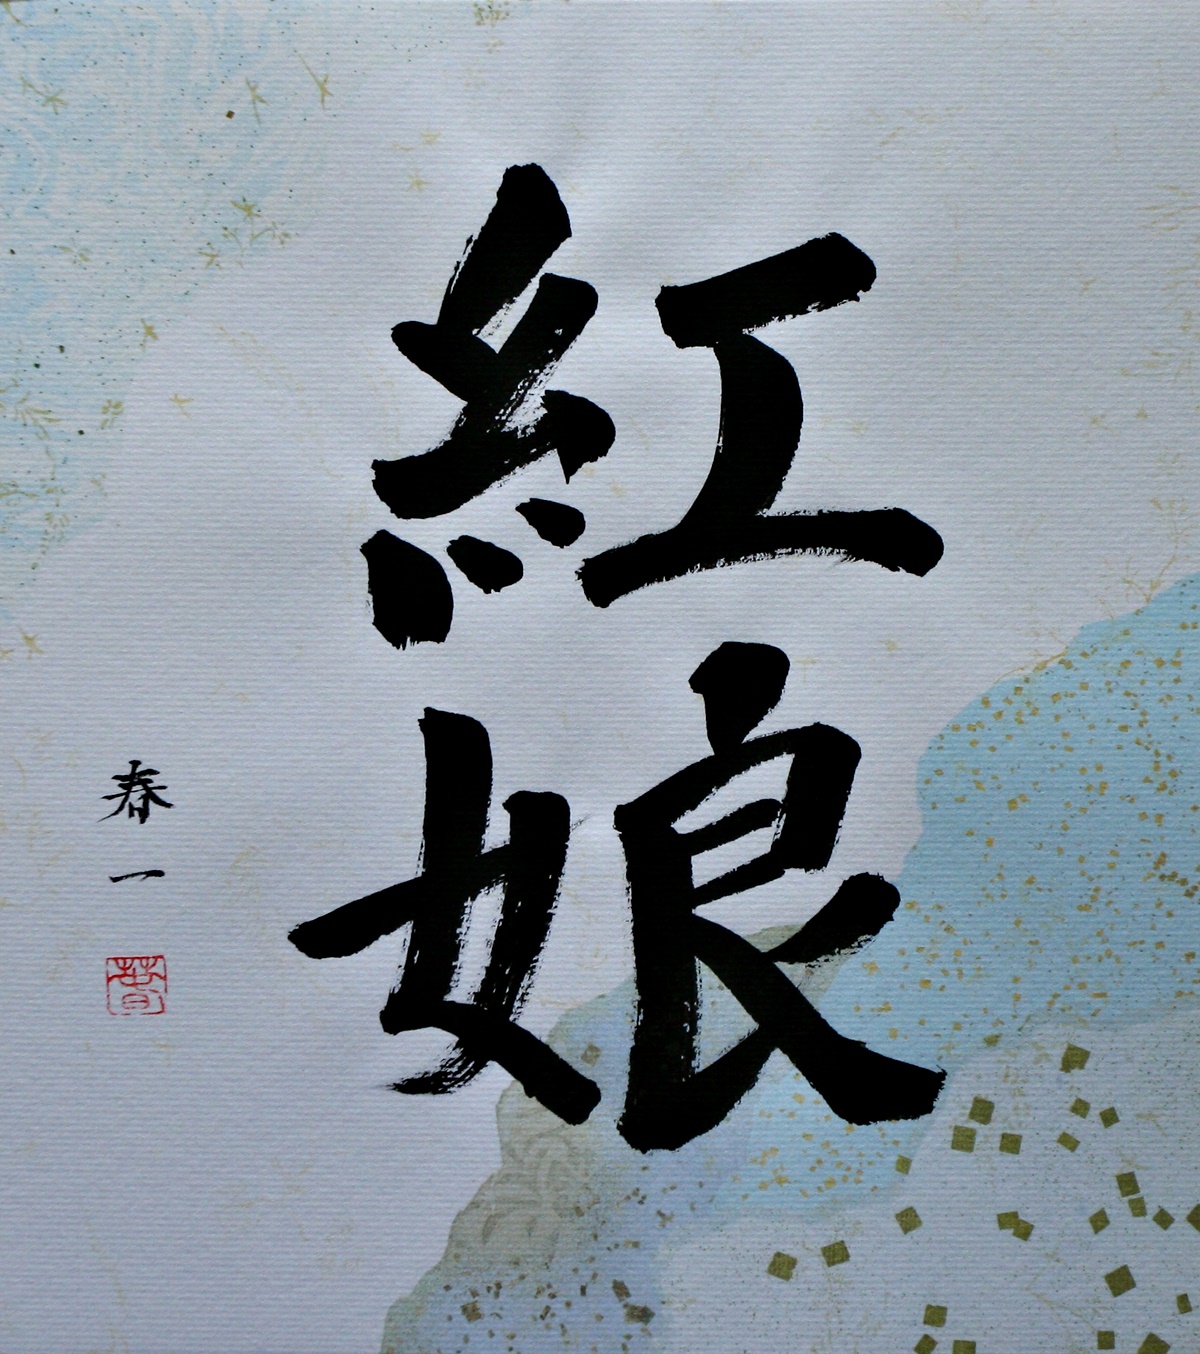 紅娘
春一
春